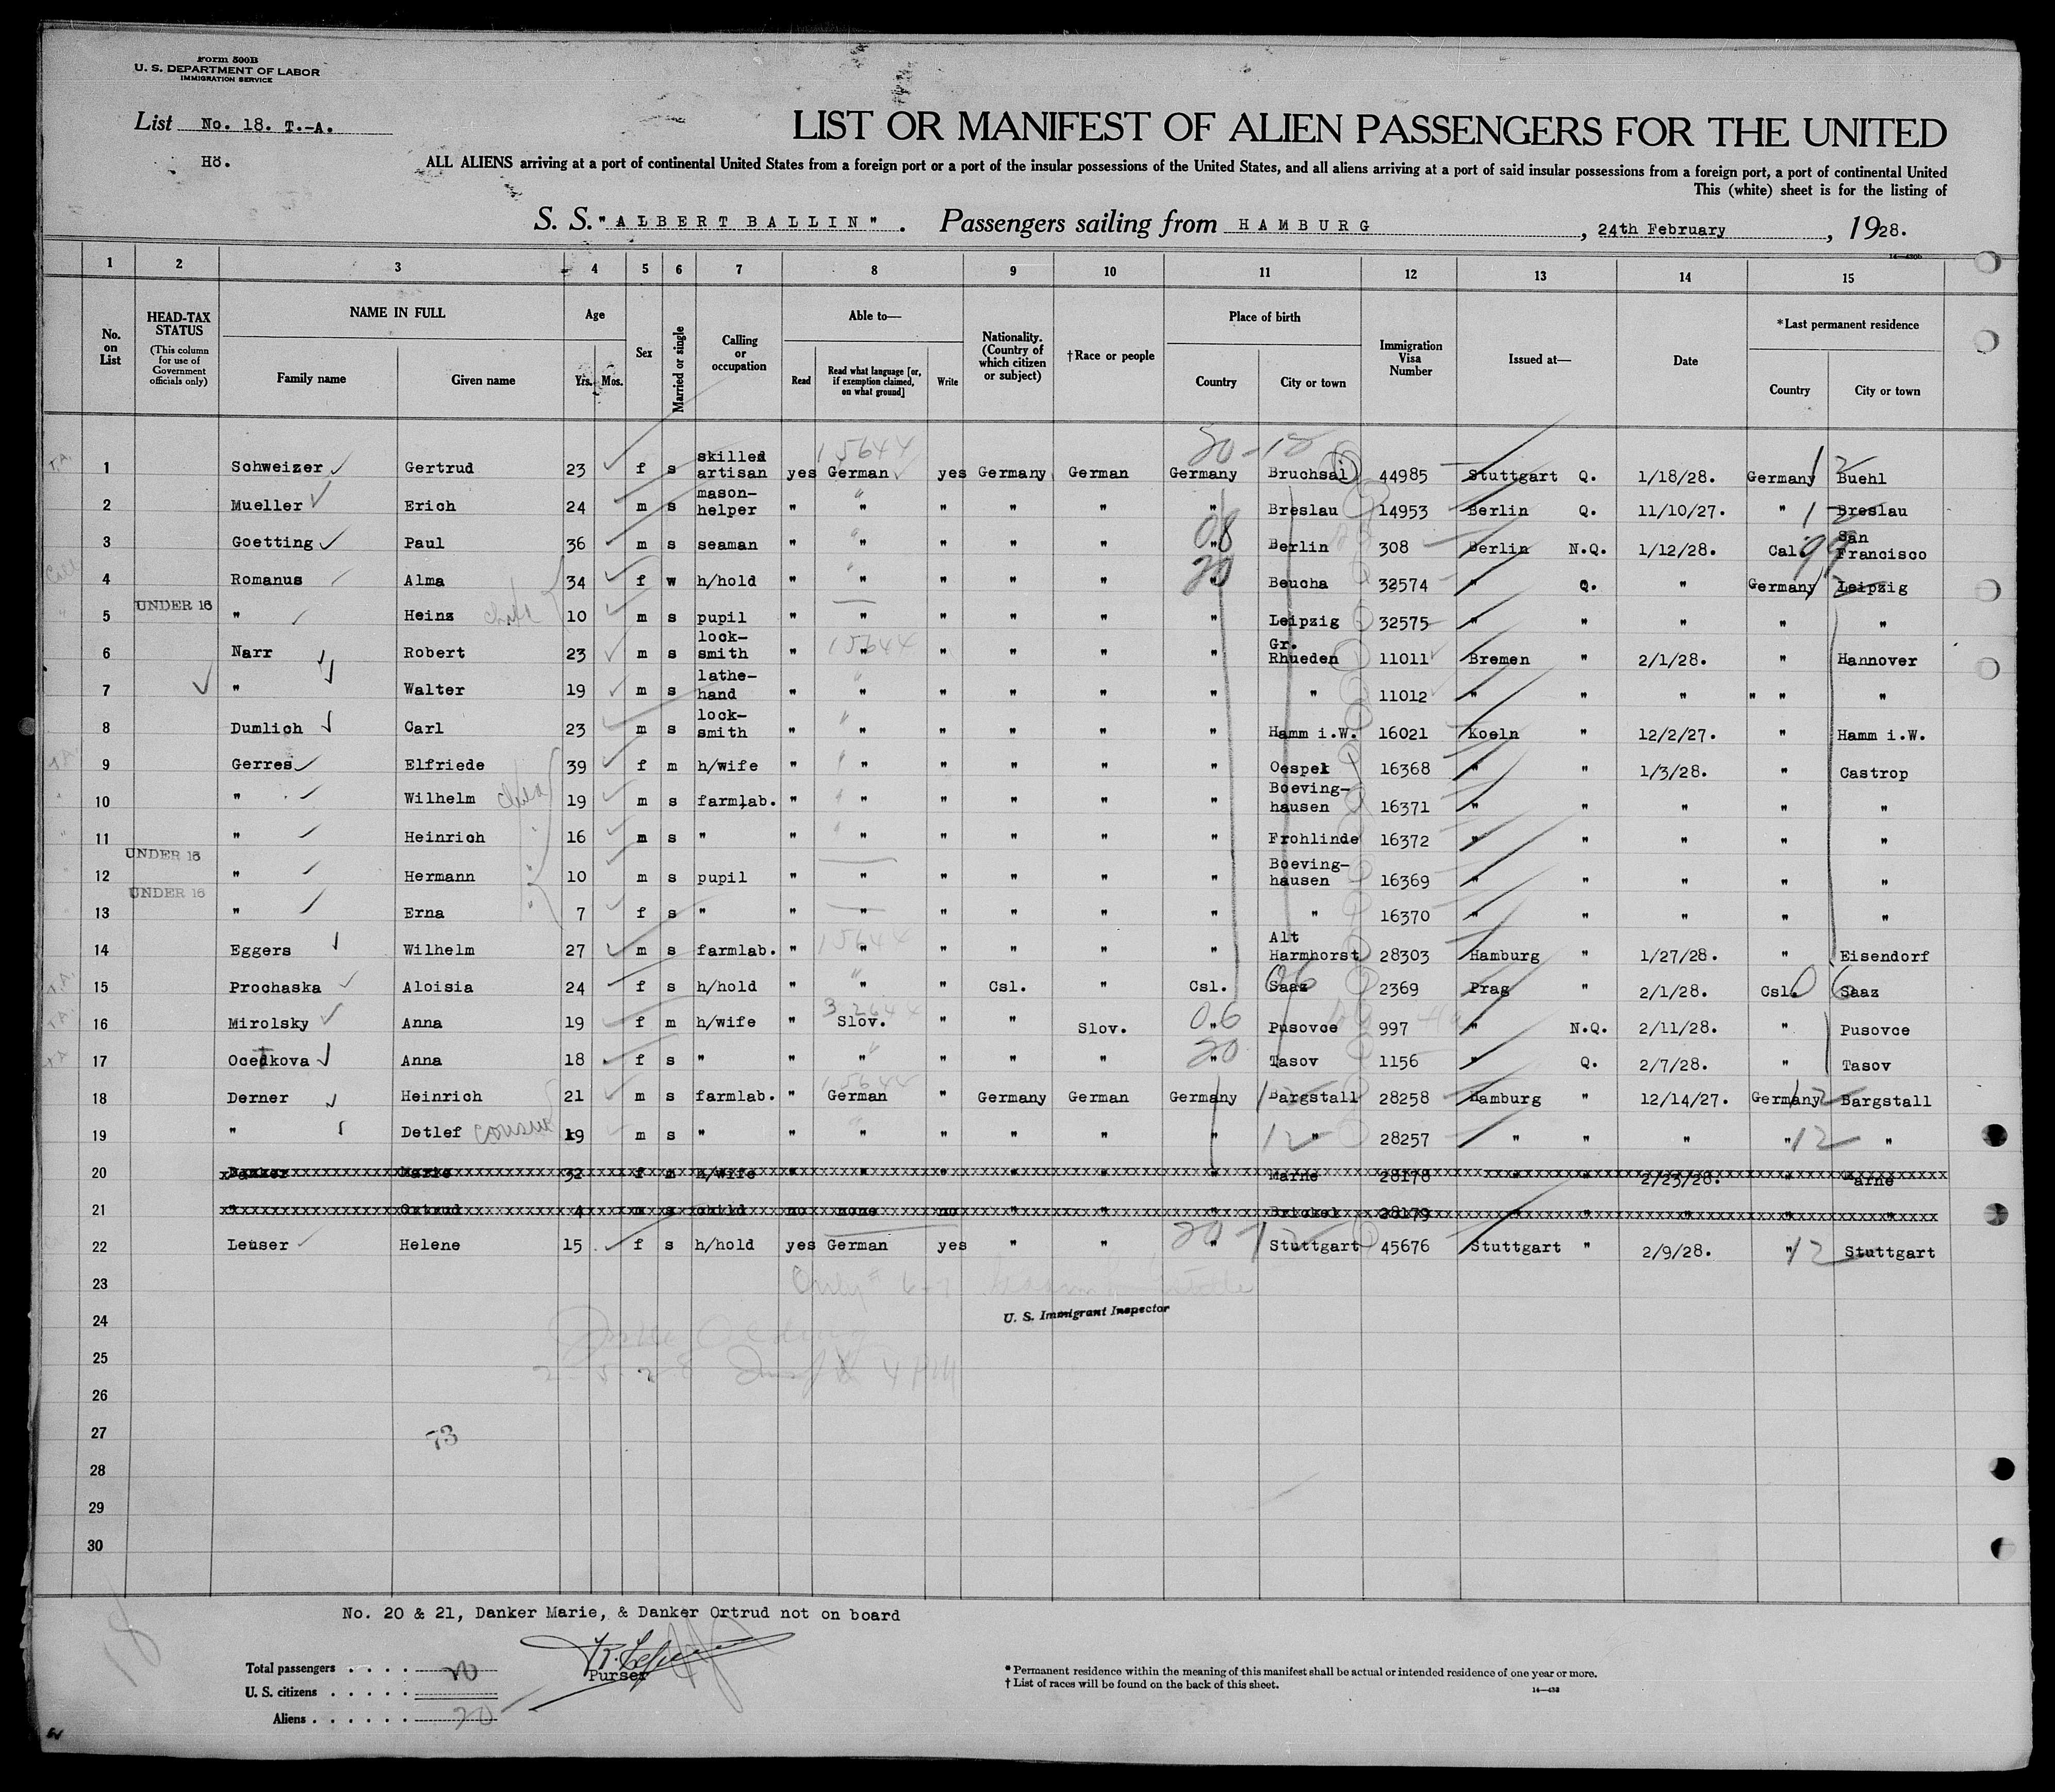 Form 500B
U. S. DEPARTMENT OF LABOR
IMMIGRATION SERVICE
List No. 18. T.-A.
Hö.
LIST OR MANIFEST OF ALIEN PASSENGERS FOR THE UNITED
ALL ALIENS arriving at a port of continental United States from a foreign port or a port of the insular possessions of the United States, and all aliens arriving at a port of said insular possessions from a foreign port, a port of continental United
This (white) sheet is for the listing of
S. S. "ALBERT BALLIN". Passengers sailing from HAMBURG, 24th February, 1928.
1 2 3 4 5 6 7 8 9 10 11 12 13 14 15
No. on List HEAD-TAX STATUS (This column for use of Government officials only) NAME IN FULL Family name Given name Age Yrs. Mos. Sex Married or single Calling or occupation Able to— Read Read what language [or, if exemption claimed, on what ground] Write Nationality. (Country of which citizen or subject) †Race or people Place of birth Country City or town Immigration Visa Number Issued at— Date *Last permanent residence Country City or town
1 Schweizer Gertrud 23 f s skilled artisan yes German yes Germany German Germany Bruchsal 44985 Stuttgart Q. 1/18/28. Germany Buehl
2 Mueller Erich 24 m s mason-helper " " " " " " Breslau 14953 Berlin Q. 11/10/27. " Breslau
3 Goetting Paul 36 m s seaman " " " " " " Berlin 308 Berlin N.Q. 1/12/28. Cal. San Francisco
4 Romanus Alma 34 f w h/hold " " " " " " Beucha 32574 " Q. " Germany Leipzig
5 UNDER 16 " Heinz 10 m s pupil " " " " " " Leipzig 32575 " " " " "
6 Narr Robert 23 m s lock-smith " " " " " " Gr. Rhueden 11011 Bremen " 2/1/28. " Hannover
7 " Walter 19 m s lathe-hand " " " " " " " 11012 " " " " " "
8 Dumlich Carl 23 m s lock-smith " " " " " " Hamm i.W. 16021 Koeln " 12/2/27. " Hamm i.W.
9 Gerres Elfriede 39 f m h/wife " " " " " " Oespel 16368 " " 1/3/28. " Castrop
10 " Wilhelm 19 m s farmlab. " " " " " " Boeving-hausen 16371 " " " " "
11 " Heinrich 16 m s " " " " " " " Frohlinde 16372 " " " " "
12 UNDER 16 " Hermann 10 m s pupil " " " " " " Boeving-hausen 16369 " " " " "
13 UNDER 16 " Erna 7 f s " " " " " " " " 16370 " " " " "
14 Eggers Wilhelm 27 m s farmlab. " " " " " " Alt Harmhorst 28303 Hamburg " 1/27/28. " Eisendorf
15 Prochaska Aloisia 24 f s h/hold " " " Csl. " Csl. Saaz 2369 Prag " 2/1/28. Csl. Saaz
16 Mirolsky Anna 19 f m h/wife " Slov. " " Slov. " Pusovce 997 " N.Q. 2/11/28. " Pusovce
17 Ocedkova Anna 18 f s " " " " " " " Tasov 1156 " Q. 2/7/28. " Tasov
18 Derner Heinrich 21 m s farmlab. " German " Germany German Germany Bargstall 28258 Hamburg " 12/14/27. Germany Bargstall
19 " Detlef 19 m s " " " " " " " " 28257 " " " " "
20 Danker Marie 32 f m h/wife " " " " " " Marne 28178 " " 2/23/28. " Marne
21 " Ortrud 4 m s child no none no " " " Brickel 28179 " " " " "
22 Leuser Helene 15 f s h/hold yes German yes " " " Stuttgart 45676 Stuttgart " 2/9/28. " Stuttgart
23
24 U. S. Immigrant Inspector
25
26
27 73
28
29
30
No. 20 & 21, Danker Marie, & Danker Ortrud not on board
Purser
Total passengers . . . . 20
U. S. citizens . . . . .
Aliens . . . . . . 20
* Permanent residence within the meaning of this manifest shall be actual or intended residence of one year or more.
† List of races will be found on the back of this sheet.